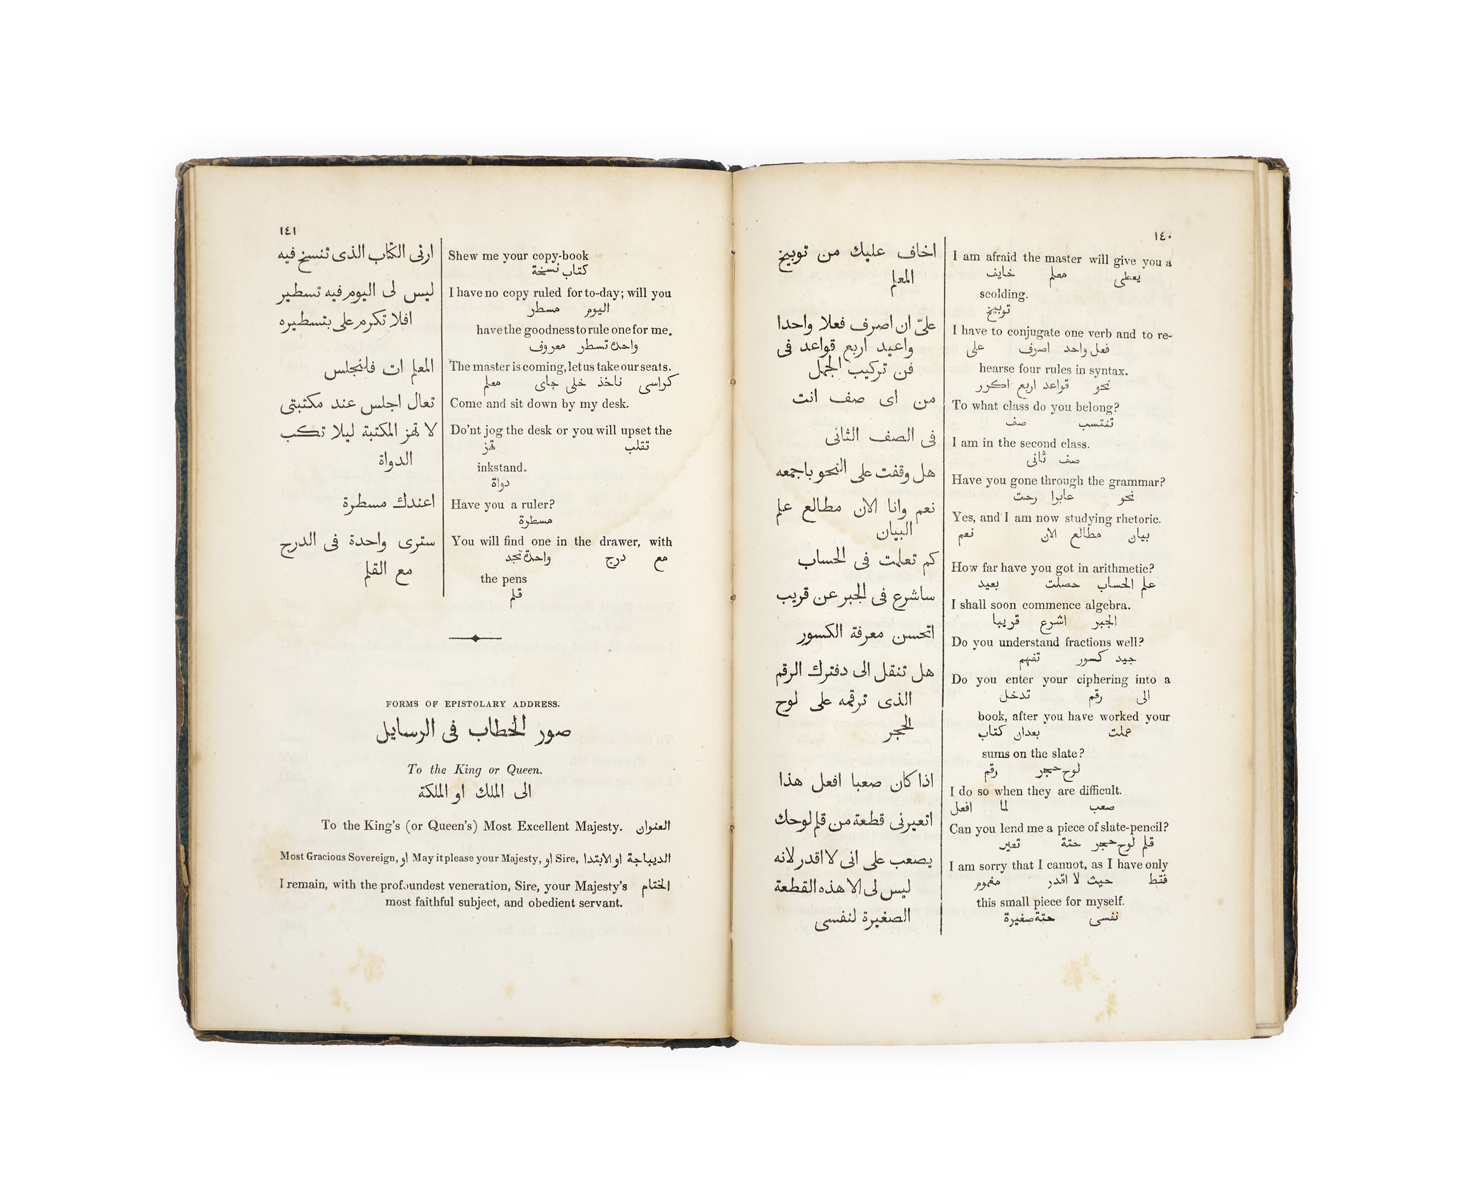 ١٤٠
I am afraid the master will give you a
يعطى معلم خايف
scolding.
توبيخ
I have to conjugate one verb and to re-
فعل واحد اصرف على
hearse four rules in syntax.
نحو قواعد اربع اكرر
To what class do you belong?
تنتسب صف
I am in the second class.
صف ثانى
Have you gone through the grammar?
نحو عابرا رحت
Yes, and I am now studying rhetoric.
بيان مطالع الان نعم
How far have you got in arithmetic?
علم الحساب حصلت بعيد
I shall soon commence algebra.
الجبر اشرع قريبا
Do you understand fractions well?
جيد كسور تفهم
Do you enter your ciphering into a
الى رقم تدخل
book, after you have worked your
عملت بعدان كتاب
sums on the slate?
لوح حجر رقم
I do so when they are difficult.
صعب لما افعل
Can you lend me a piece of slate-pencil?
قلم لوح حجر حتة تعير
I am sorry that I cannot, as I have only
فقط حيث لا اقدر مغموم
this small piece for myself.
نفسى حتة صغيرة
اخاف عليك من توبيخ
المعلم
علىّ ان اصرف فعلا واحدا
واعيد اربع قواعد فى
فن تركيب الجمل
من اى صف انت
فى الصف الثانى
هل وقفت على النحو باجمعه
نعم وانا الان مطالع علم
البيان
كم تعلمت فى الحساب
ساشرع فى الجبر عن قريب
اتحسن معرفة الكسور
هل تنقل الى دفترك الرقم
الذى ترقمه على لوح
الحجر
اذا كان صعبا افعل هذا
اتعيرنى قطعة من قلم لوحك
يصعب على انى لا اقدر لانه
ليس لى الا هذه القطعة
الصغيرة لنفسى
١٤١
Shew me your copy-book
كتاب نسخة
I have no copy ruled for to-day; will you
اليوم مسطر
have the goodness to rule one for me.
واحدة تسطر معروف
The master is coming, let us take our seats.
كراسى ناخذ خلى جاى معلم
Come and sit down by my desk.
Do'nt jog the desk or you will upset the
تقلب تهز
inkstand.
دواة
Have you a ruler?
مسطرة
You will find one in the drawer, with
مع درج واحدة تجد
the pens
قلم
ارنى الكتاب الذى تنسخ فيه
ليس لى اليوم فيه تسطير
افلا تكرم على بتسطيره
المعلم ات فلنجلس
تعال اجلس عند مكتبتى
لا تهز المكتبة ليلا تكب
الدواة
اعندك مسطرة
سترى واحدة فى الدرج
مع القلم
FORMS OF EPISTOLARY ADDRESS.
صور الخطاب فى الرسايل
To the King or Queen.
الى الملك او الملكة
To the King's (or Queen's) Most Excellent Majesty. العنوان
Most Gracious Sovereign, او May it please your Majesty, او Sire, الديباجة او الابتدا
I remain, with the profoundest veneration, Sire, your Majesty's الختام
most faithful subject, and obedient servant.